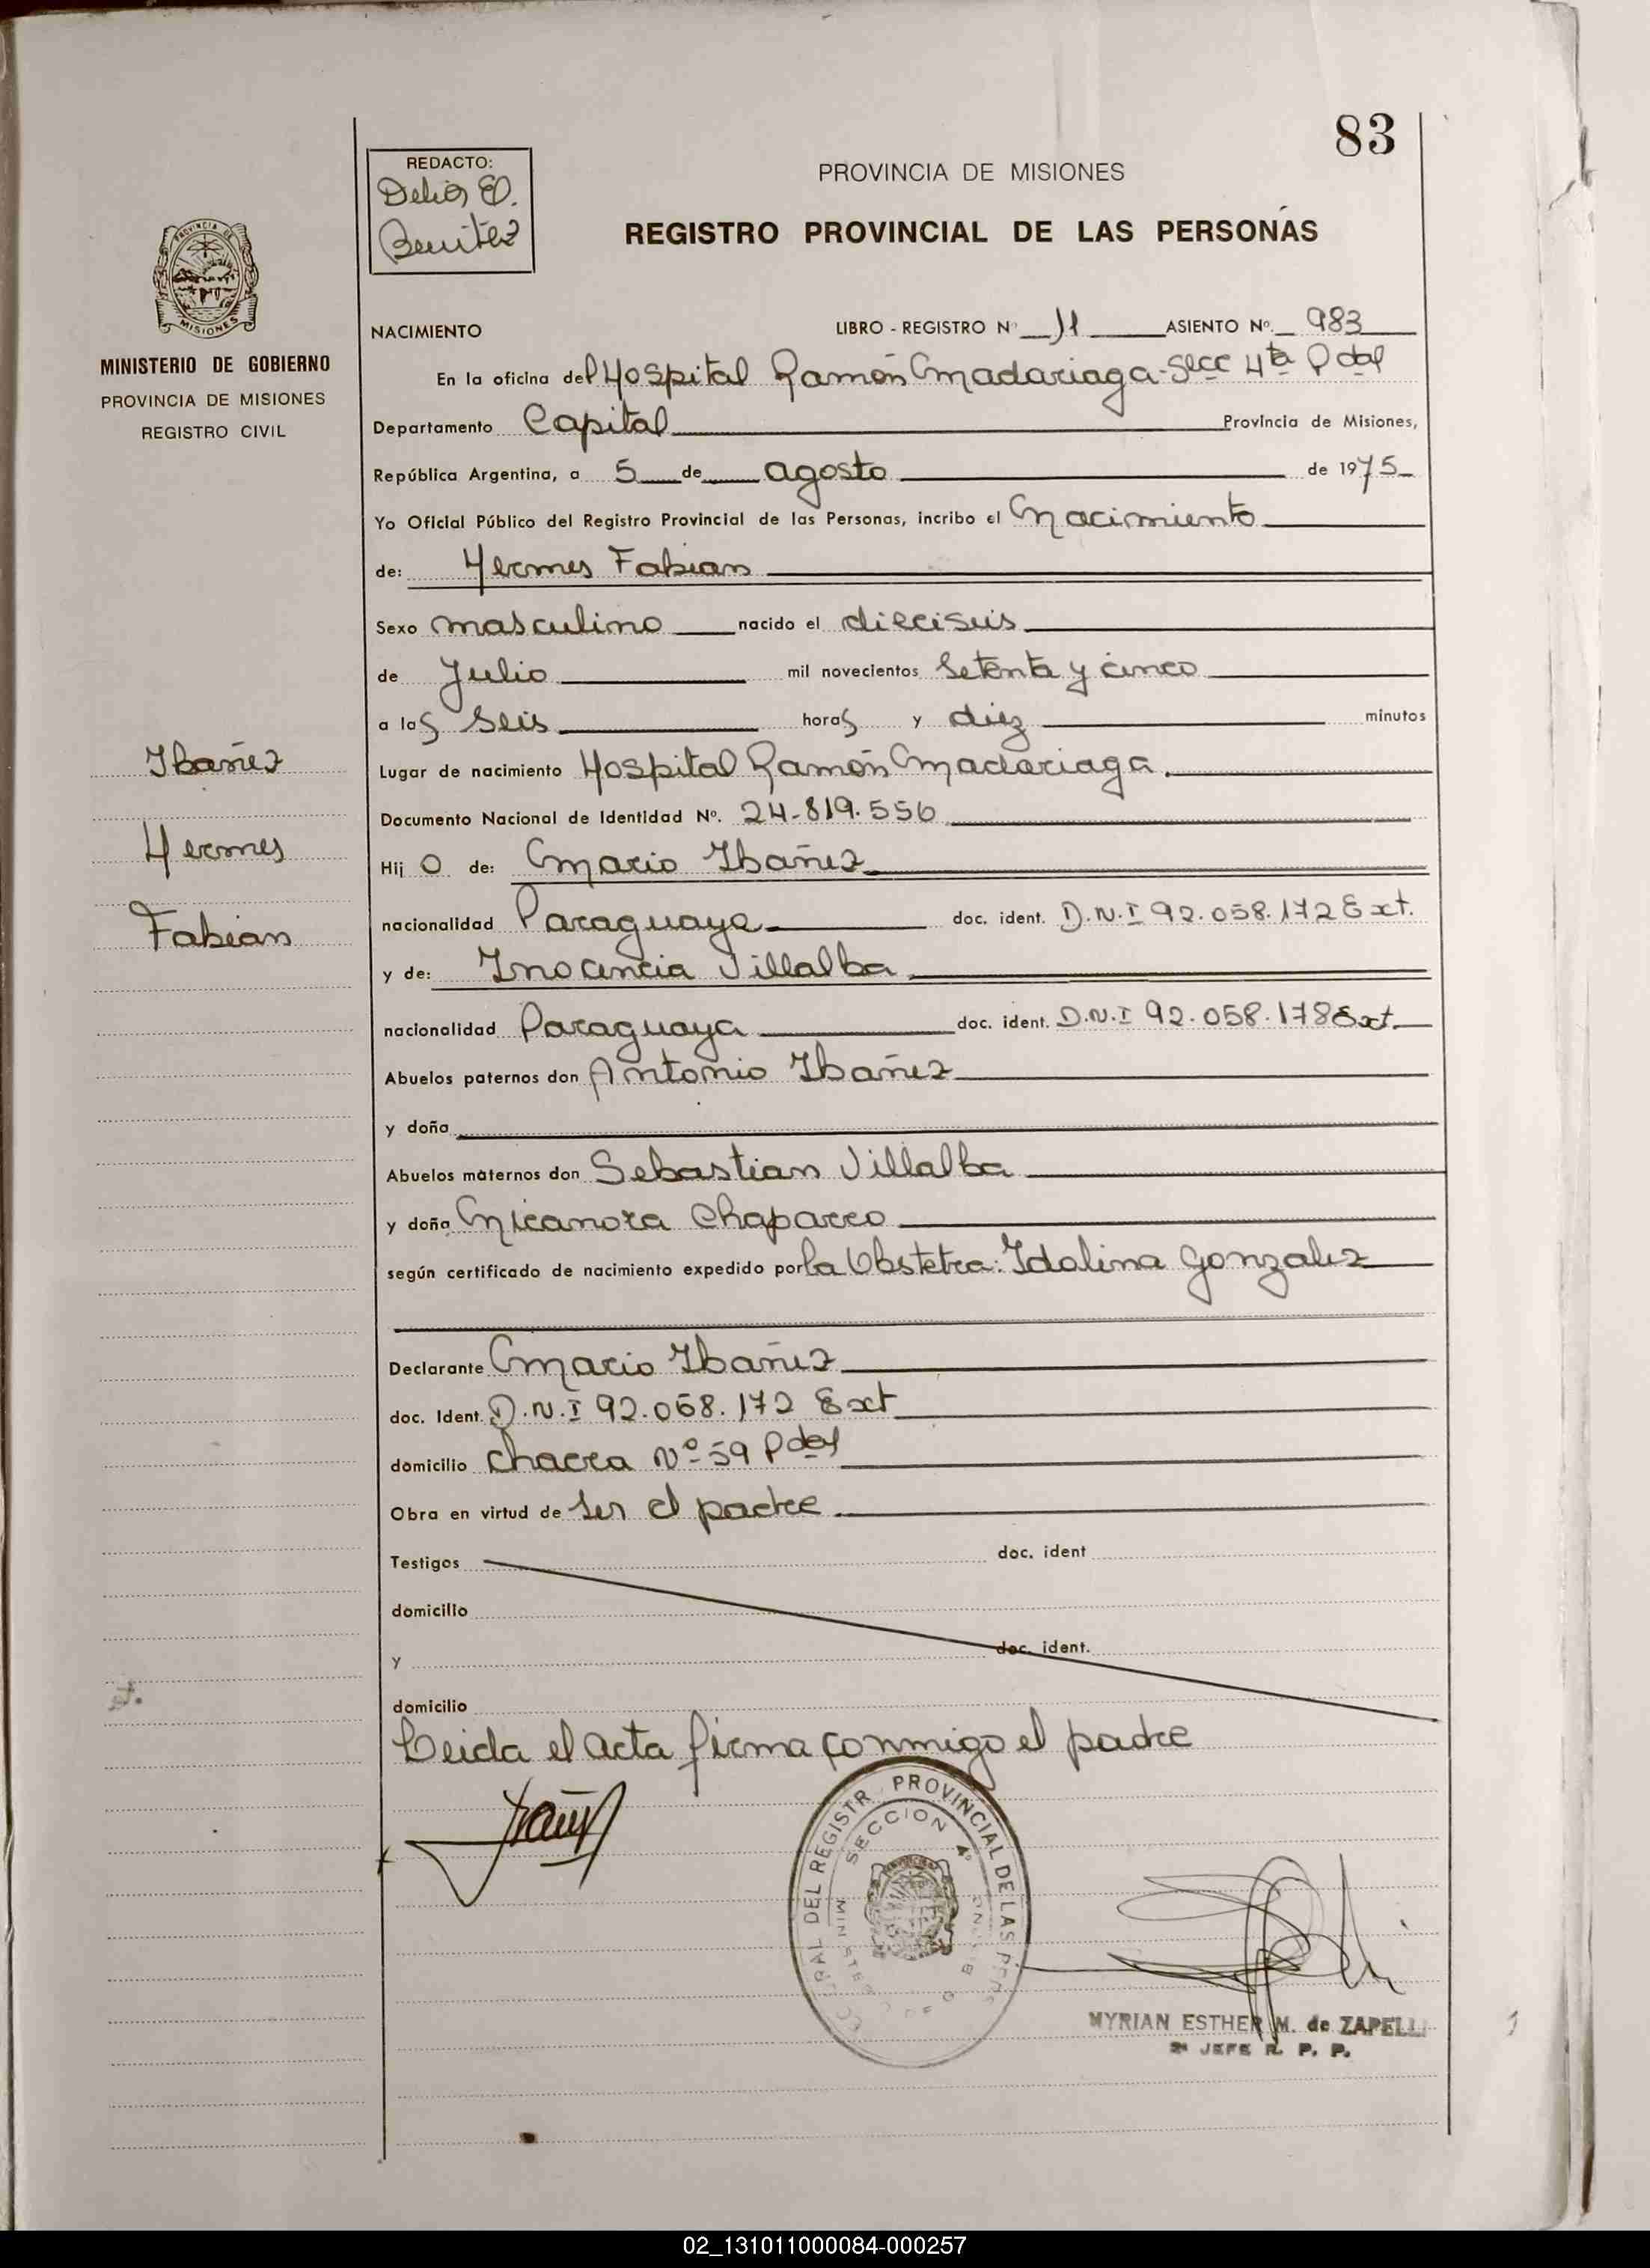 83
REDACTO:
Delia E.
Benitez
PROVINCIA DE MISIONES
REGISTRO PROVINCIAL DE LAS PERSONAS
MISIONES
MINISTERIO DE GOBIERNO
PROVINCIA DE MISIONES
REGISTRO CIVIL
NACIMIENTO LIBRO - REGISTRO Nº 11 ASIENTO Nº. 983
En la oficina del Hospital Ramón Madariaga-Secc 4ta Pdas
Departamento Capital Provincia de Misiones,
República Argentina, a 5 de agosto de 1975
Yo Oficial Público del Registro Provincial de las Personas, incribo el Nacimiento
de: Hermes Fabian
Sexo masculino nacido el dieciseis
de Julio mil novecientos Setenta y cinco
a las Seis horas y diez minutos
Lugar de nacimiento Hospital Ramón Madariaga.
Documento Nacional de Identidad Nº. 24-819.556
Hijo de: Mario Ibañez
nacionalidad Paraguaya doc. ident. D.N.I 92.058.172 Ext.
y de: Inocencia Villalba
nacionalidad Paraguaya doc. ident. D.N.I 92.058.178 Ext.
Abuelos paternos don Antonio Ibañez
y doña
Abuelos maternos don Sebastian Villalba
y doña Nicanora Chaparro
según certificado de nacimiento expedido por la Obstetra: Idolina Gonzalez
Declarante Mario Ibañez
doc. Ident. D.N.I 92.058.172 Ext
domicilio Chacra Nº 59 Pdas
Obra en virtud de Ser el padre
Testigos doc. ident
domicilio
y doc. ident.
domicilio
Leida el acta firma conmigo el padre
Ibañez
Hermes
Fabian
REGISTR PROVINCIAL DE LAS PERS
SECCION 4ª
MYRIAN ESTHER M. de ZAPELLI
2ª JEFE R. P. P.
02_131011000084-000257